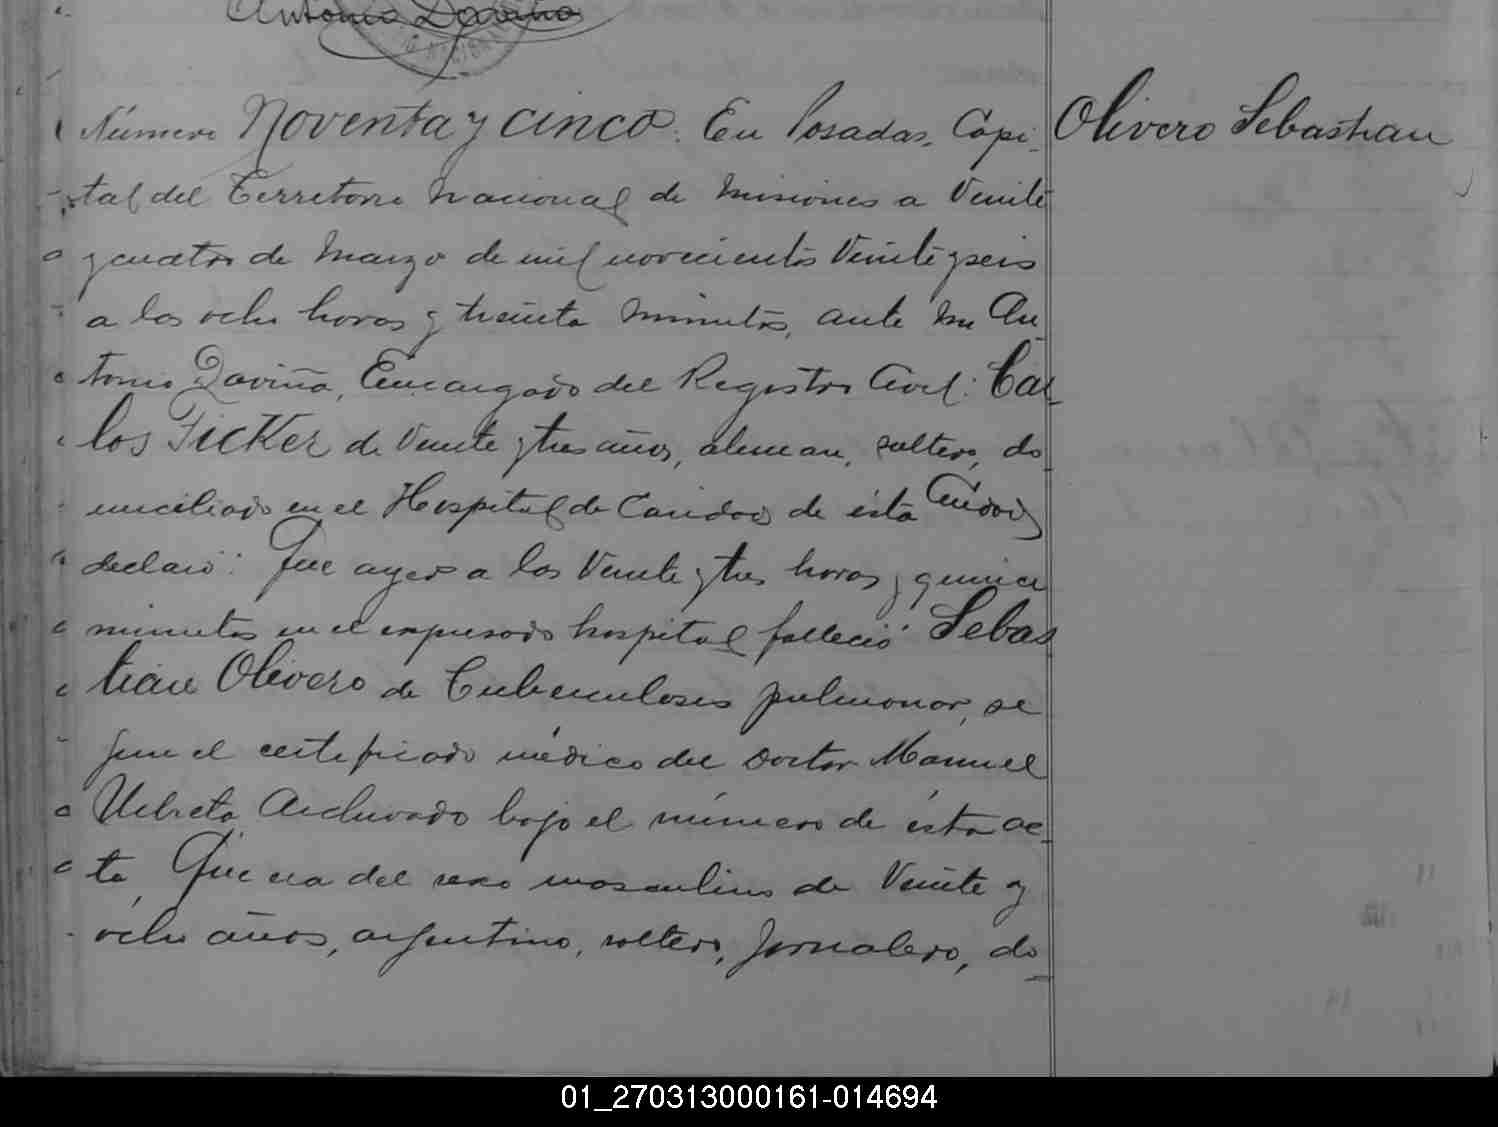 Antonio Zaviña
NACIONAL
Número Noventa y cinco. En Posadas, Capi-
Olivero Sebastian
tal del Territorio Nacional de Misiones a Veinte
y cuatro de Marzo de mil novecientos Veinte y seis
a las ocho horas y treinta minutos, ante mi An-
tonio Zaviña, Encargado del Registro Civil: Car-
los Ficker de Veinte y tres años, aleman, soltero, do-
miciliado en el Hospital de Caridad de ésta Ciudad
declaró: Que ayer a las Veinte y tres horas y quince
minutos en el expresado hospital falleció Sebas
tian Olivero de Tuberculosis pulmonar, se
gun el certificado médico del Doctor Manuel
Urbieta Archivado bajo el número de ésta ac-
ta, Que era del sexo masculino de Veinte y
ocho años, argentino, soltero, Jornalero, do-
01_270313000161-014694